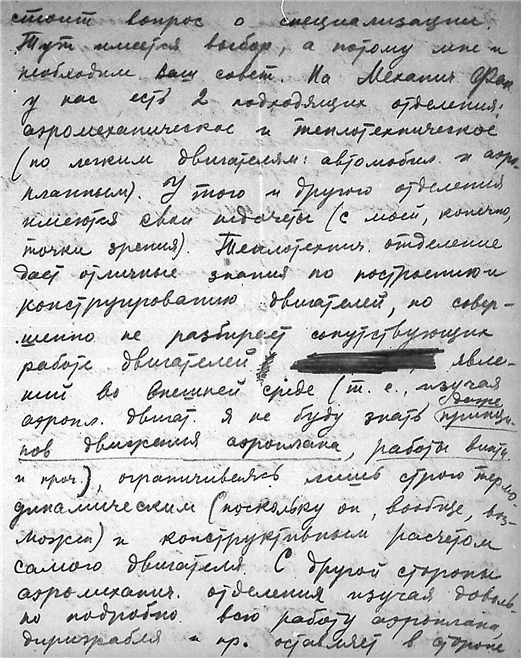 стоит вопрос о специализации.
Тут имеется выбор, а потому мне и
необходим Ваш совет. На Механич. Фак.
у нас есть 2 подходящих отделения:
аэромеханическое и теплотехническое
(по легким двигателям: автомобил. и аэро-
планным). У того и другого отделения
имеются свои недочеты (с моей, конечно,
точки зрения). Теплотехнич. отделение
дает отличные знания по построению и
конструированию двигателей, но совер-
шенно не разбирает сопутствующих
работе двигателей явле-
ний во внешней среде (т. е., изучая
аэропл. двигат. я не буду знать даже принци-
пов движения аэроплана, работы винта
и проч.), ограничиваясь лишь строго термо-
динамическим (поскольку он, вообще, воз-
можен) и конструктивным расчетом
самого двигателя. С другой стороны
аэромеханич. отделения изучая доволь-
но подробно всю работу аэроплана,
дирижабля и пр. оставляет в стороне